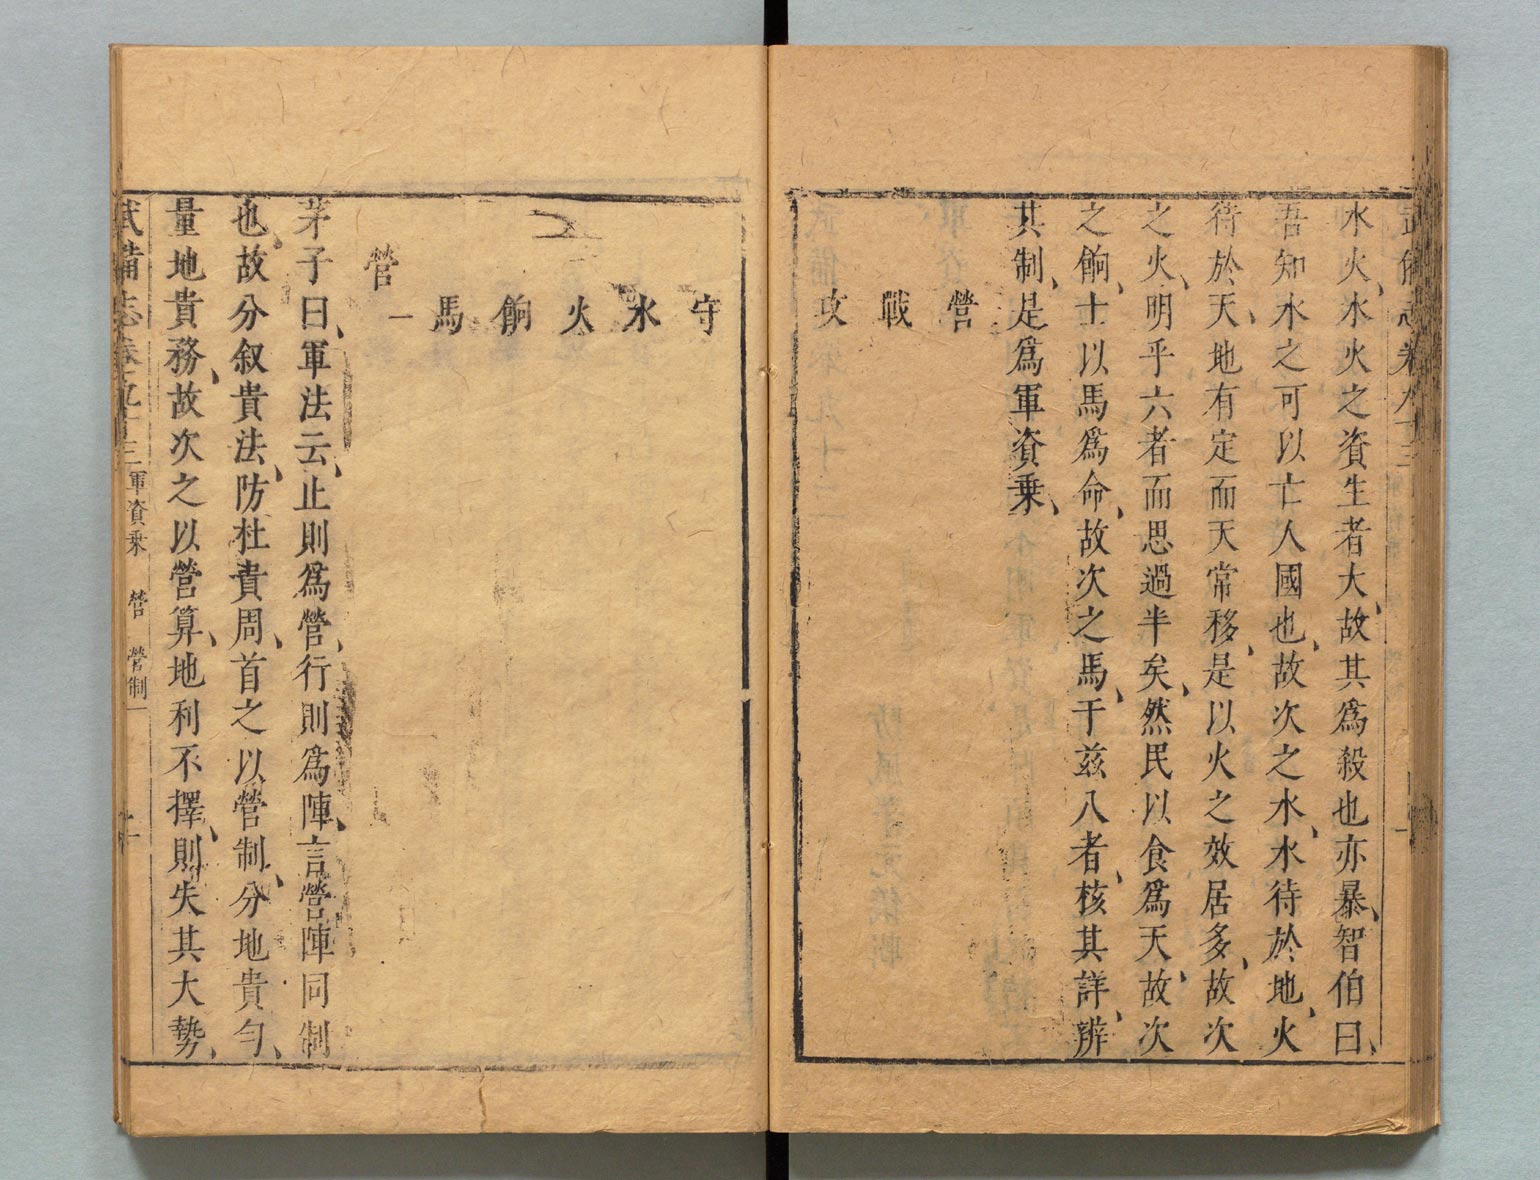 武備志卷九十三
水火、水火之資生者大、故其爲殺也亦暴、智伯曰、
吾知水之可以亡人國也、故次之水、水待於地、火
待於天、地有定而天常移、是以火之效居多、故次
之火、明乎六者而思過半矣、然民以食爲天、故次
之餉、士以馬爲命、故次之馬、于兹八者、核其詳、辨
其制、是爲軍資乗、
營
戰
攻
守
水
火
餉
馬
營一
茅子曰、軍法云、止則爲營、行則爲陣、言營陣同制
也、故分叙貴法、防杜貴周、首之以營制、分地貴勻、
量地貴務、故次之以營算、地利不擇、則失其大勢、
武備志卷九十三 軍資乗 營 營制一